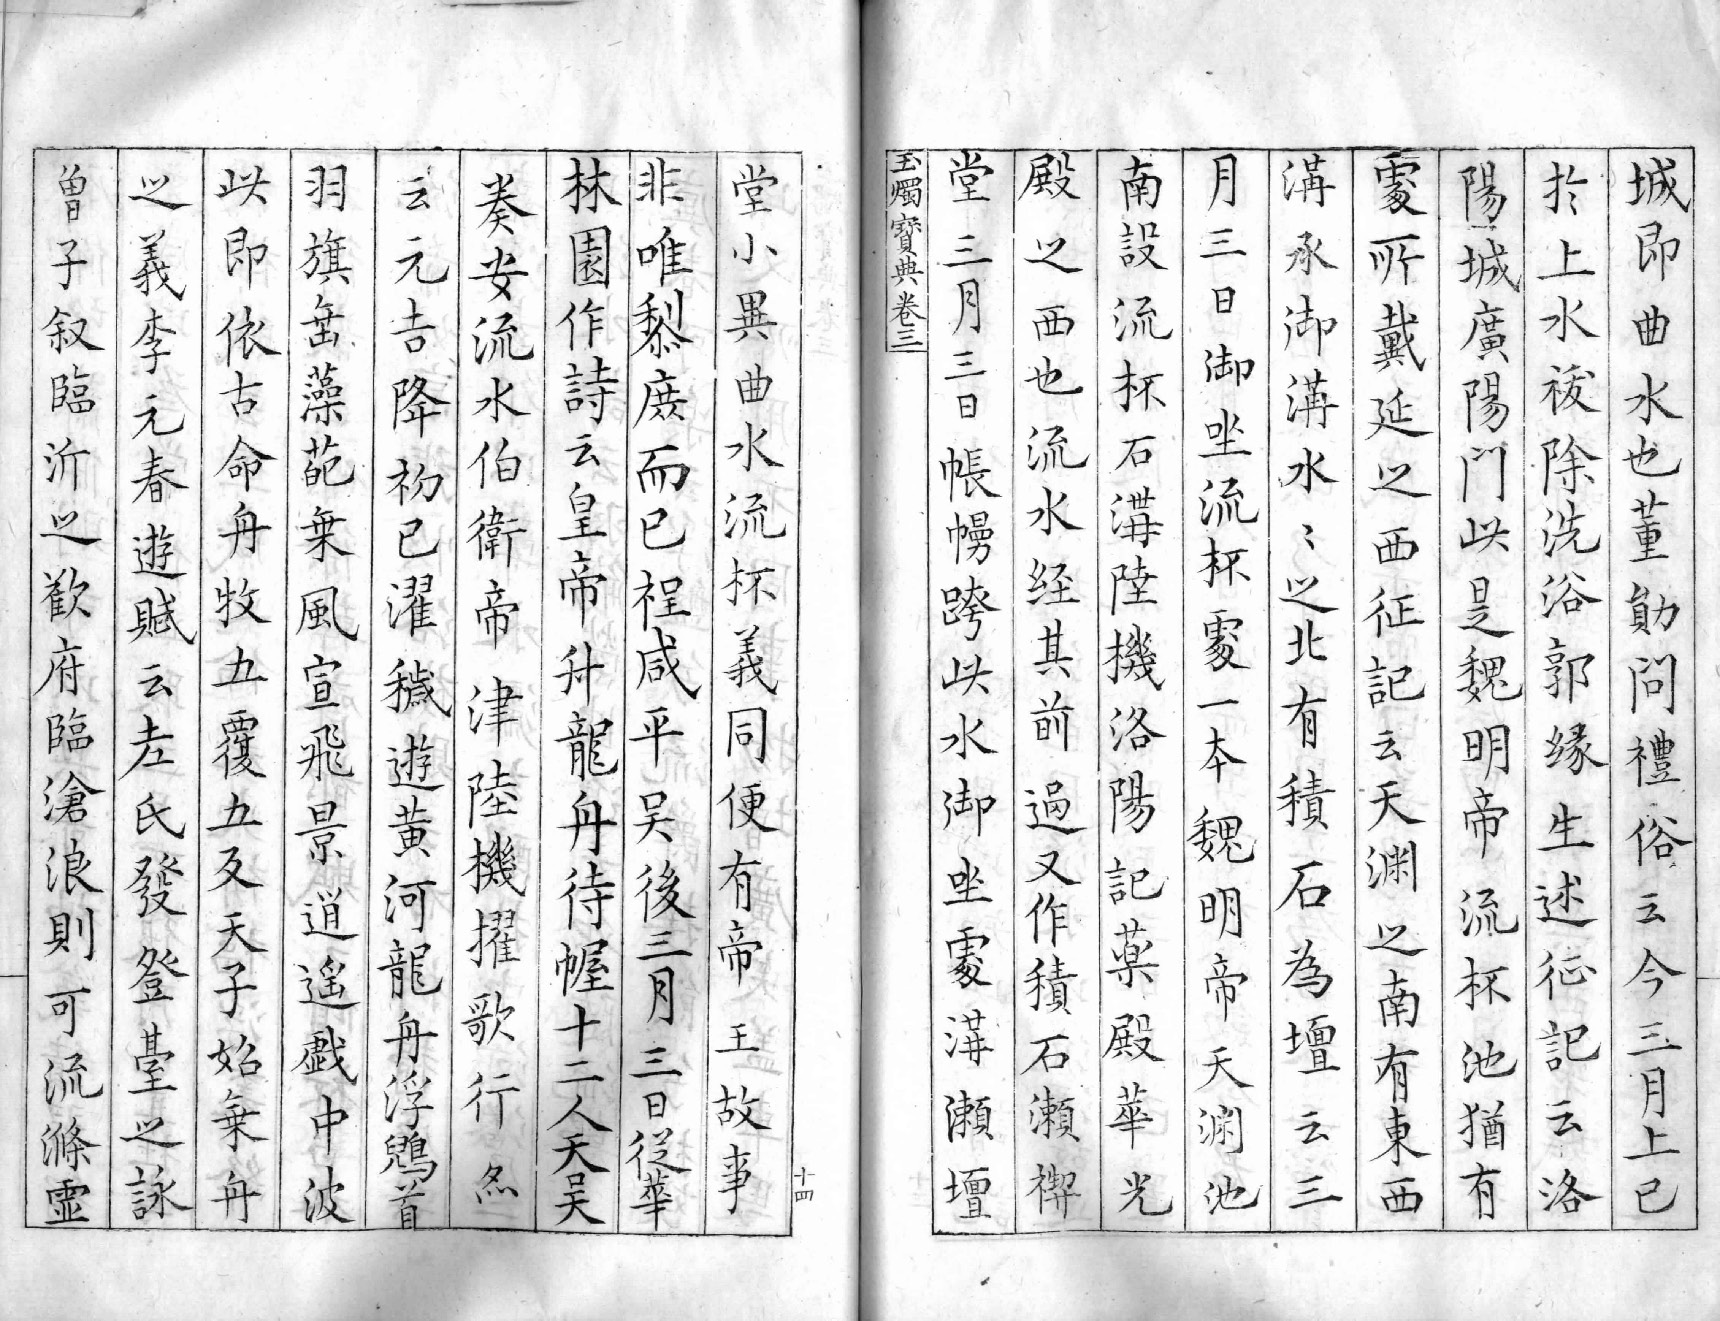 城即曲水也董勛問禮俗云今三月上巳
扵上水祓除洗浴郭緣生述征記云洛
陽城廣陽門北是魏明帝流杯池猶有
䖏所戴延之西征記云天渊之南有東西
溝承御溝水〻之北有積石為壇云三
月三日御坐流杯䖏一本魏明帝天渊池
南設流杯石溝陸機洛陽記薬殿華光
殿之西也流水经其前過又作積石瀨禊
堂三月三日帳幔跨此水御坐䖏溝瀨壇
玉燭寶典卷三
堂小異曲水流杯義同便有帝王故事
非唯黎庶而已裎咸平吴後三月三日從華
林園作詩云皇帝升龍舟待幄十二人天吴
奏安流水伯衛帝津陸機擢歌行㷊
云元吉降初已濯穢遊黄河龍舟浮鷁首
羽旗垂藻葩乗風宣飛景逍遥戲中波
此即依古命舟牧五覆五反天子始乗舟
之義李元春遊賦云左氏發登臺之詠
曽子叙臨沂之歡府臨滄浪則可流滌霊
十四